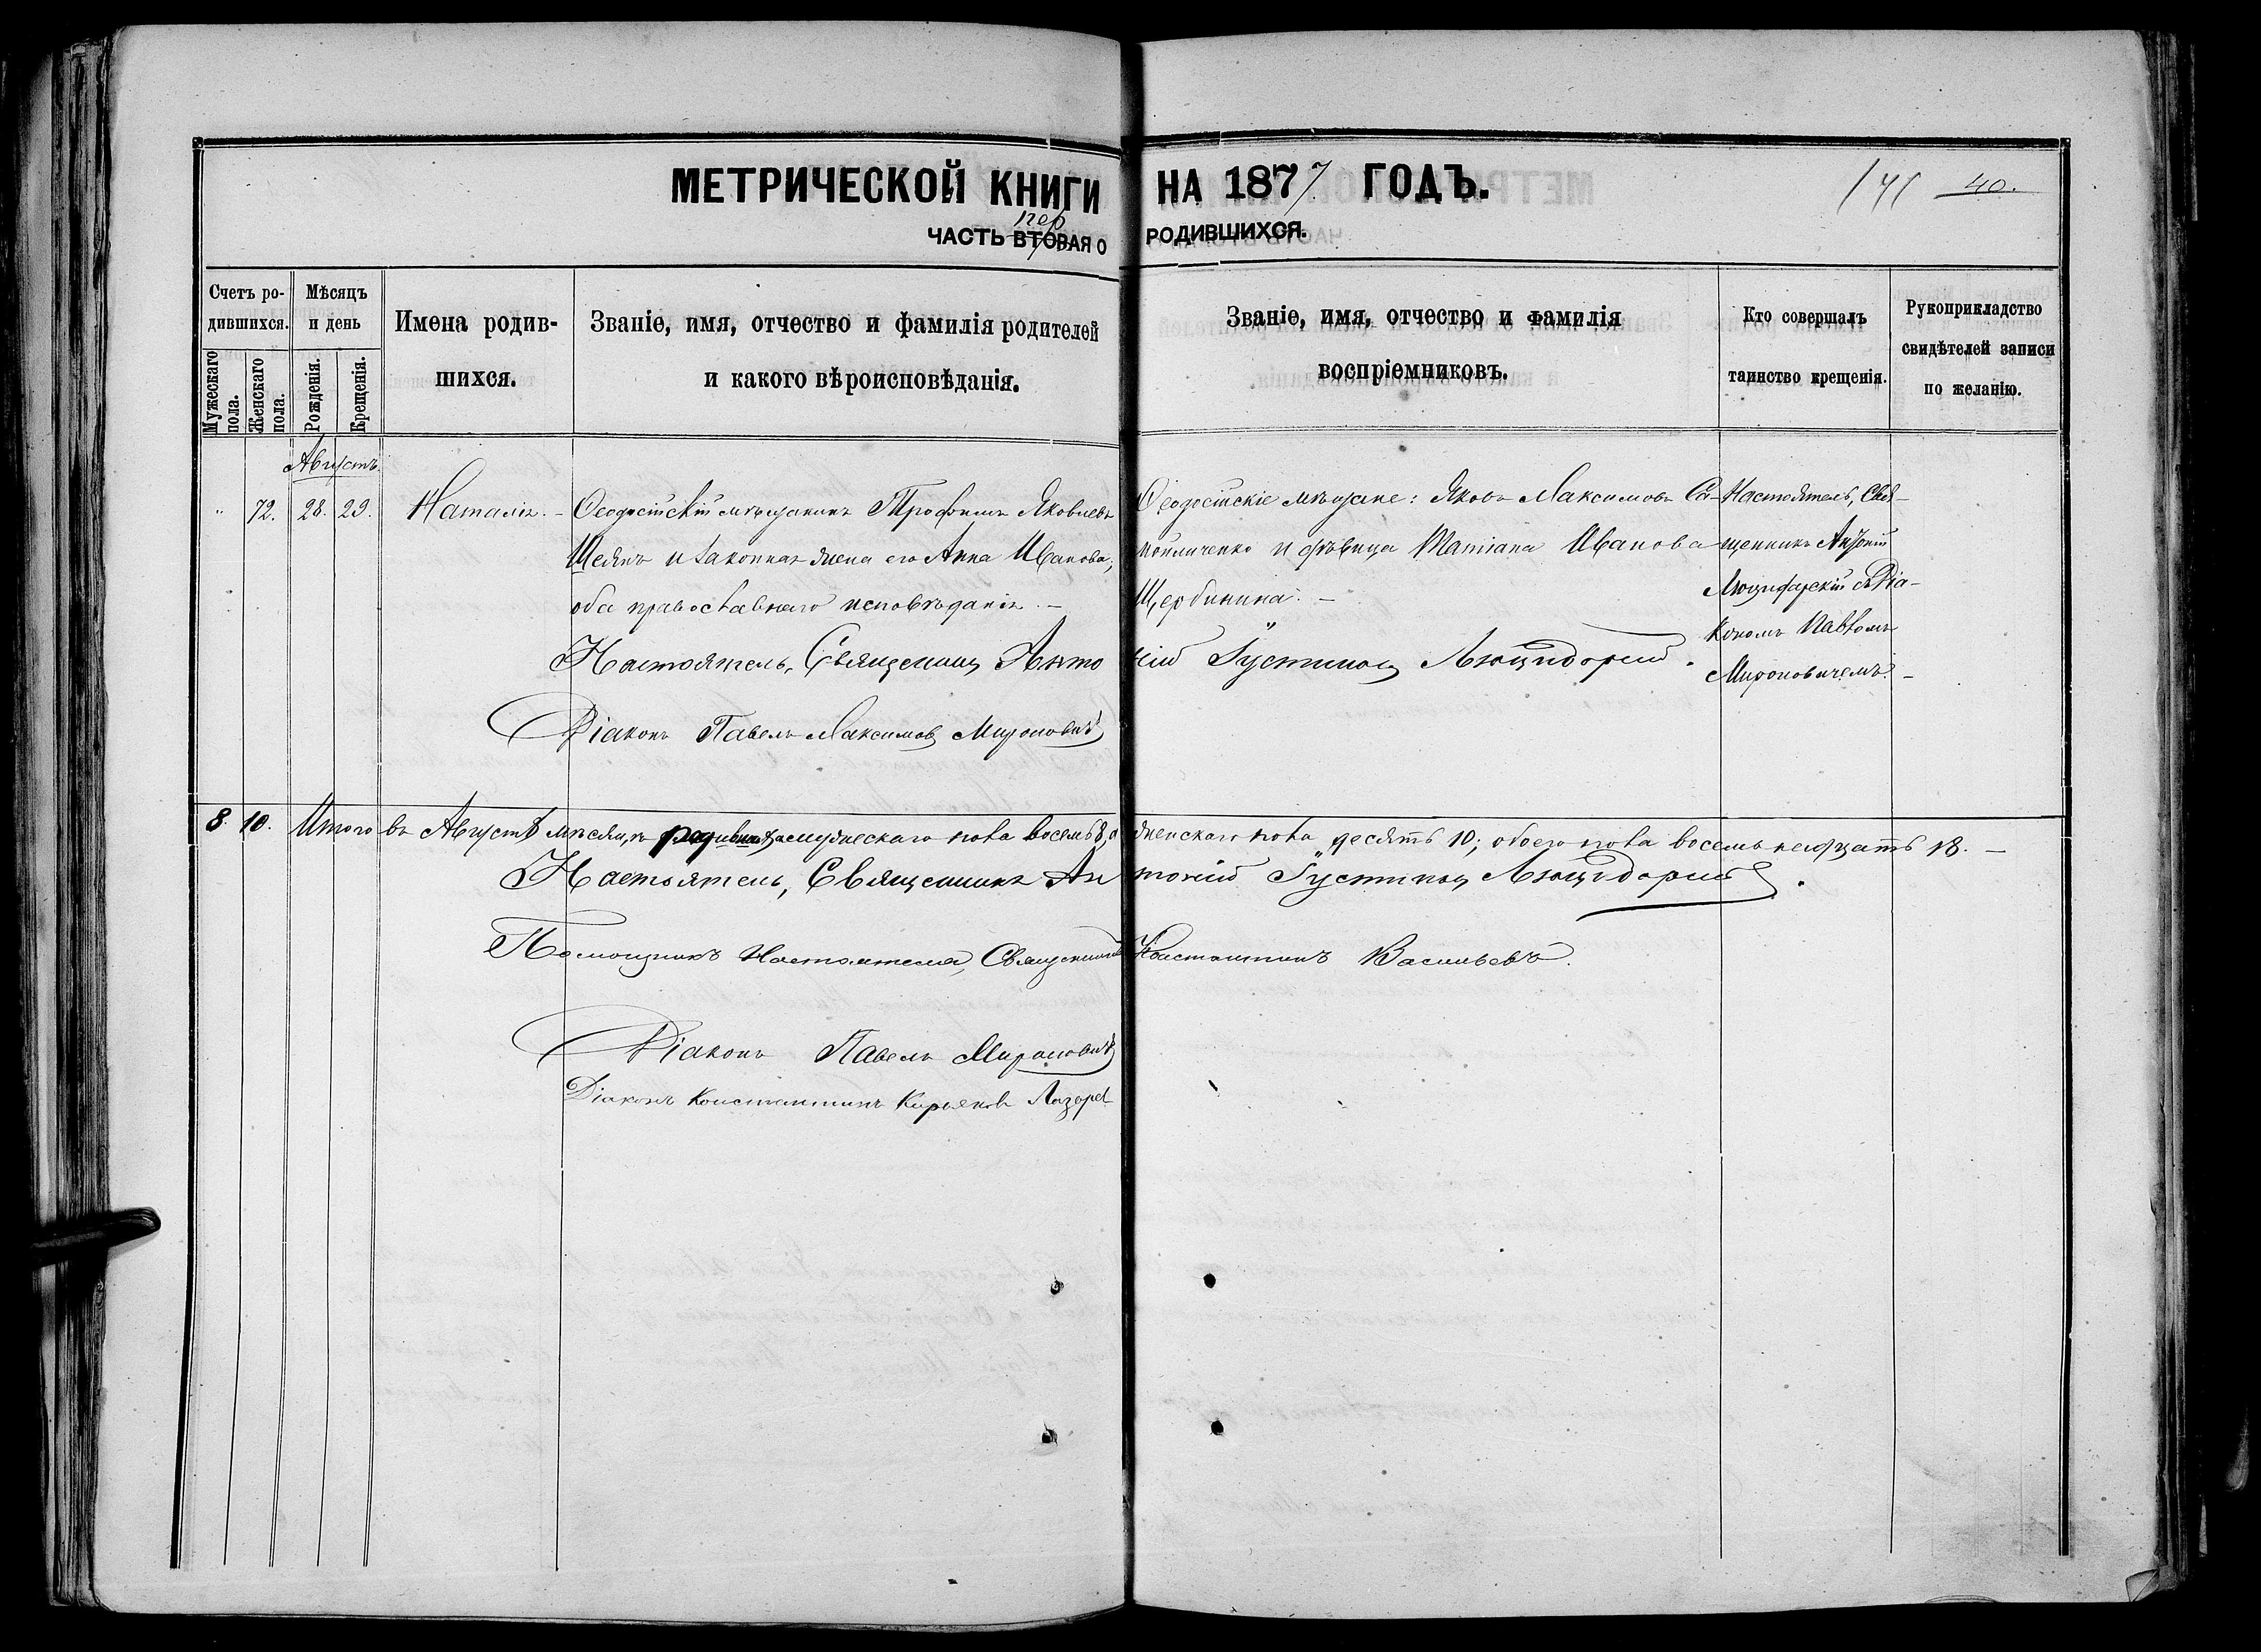 МЕТРИЧЕСКОЙ КНИГИ НА 1877 ГОДЪ.
141 40.
пер
ЧАСТЬ ВТОРАЯ О РОДИВШИХСЯ.
Счетъ ро-
дившихся.
Мужескаго пола.
Женскаго пола.
Мѣсяцъ
и день
Рожденія.
Крещенія.
Имена родив-
шихся.
Званіе, имя, отчество и фамилія родителей
и какого вѣроисповѣданія.
Званіе, имя, отчество и фамилія
воспріемниковъ.
Кто совершалъ
таинство крещенія.
Рукоприкладство
свидѣтелей записи
по желанію.
Августъ.
" 72. 28. 29. Наталія. –
Ѳеодосійскій мѣщанинъ Трофимъ Яковлевъ
и законная жена его Анна Иванова,
оба православнаго исповѣданія. –
Ѳеодосійскіе мѣщане: Яковъ Максимовъ
и дѣвица Татіана Иванова
Щербинина. –
Настоятель, Свя-
щенникъ Антоній
съ Діа-
кономъ Павломъ
Мироновичемъ. –
Настоятель, Священникъ Антоній Густиновъ
Діаконъ Павелъ Максимовъ Мироновичъ
8. 10. Итого въ Августѣ мѣсяцѣ родившихся мужескаго пола восемь 8, а женскаго пола десять 10; обоего пола восемьнадцать 18. –
Настоятель, Священникъ Антоній Густиновъ
Помощникъ Настоятеля, Священникъ Константинъ Васильевъ.
Діаконъ Павелъ Мироновичъ
Діаконъ Константинъ Кирьяковъ